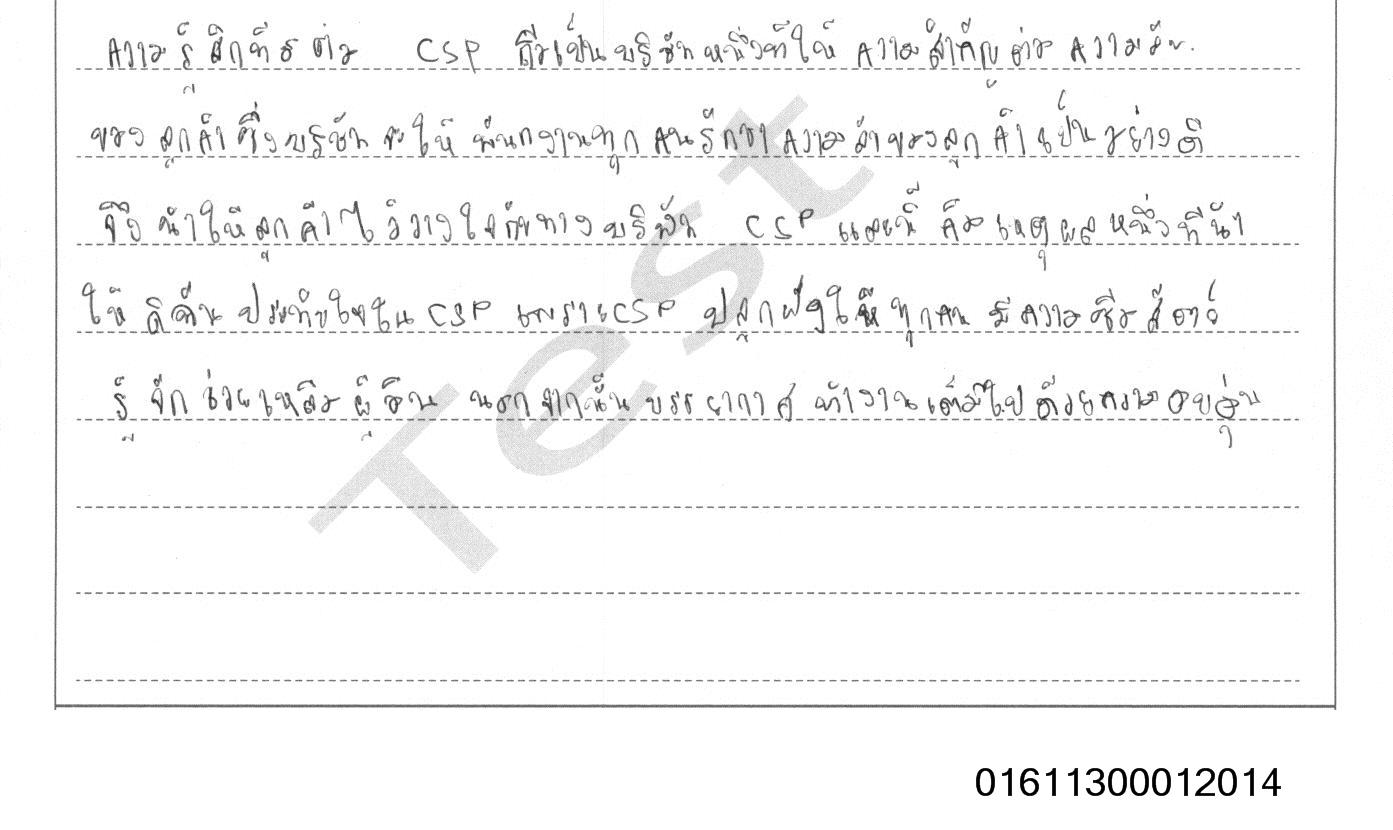 ความรู้สึกที่มีต่อ CSP ถือเป็นบริษัทหนึ่งที่ให้ความสำคัญต่อความลับ
ของลูกค้าซึ่งบริษัทจะให้พนักงานทุกคนรักษาความลับของลูกค้าเป็นอย่างดี
จึงทำให้ลูกค้าไว้วางใจกับทางบริษัท CSP และนี่คือเหตุผลหนึ่งที่ทำ
ให้ดิฉันประทับใจใน CSP เพราะCSP ปลูกฝังให้ทุกคนมีความซื่อสัตย์
รู้จักช่วยเหลือผู้อื่น นอกจากนั้นบรรยากาศทำงานเต็มไปด้วยความอบอุ่น
Test
01611300012014